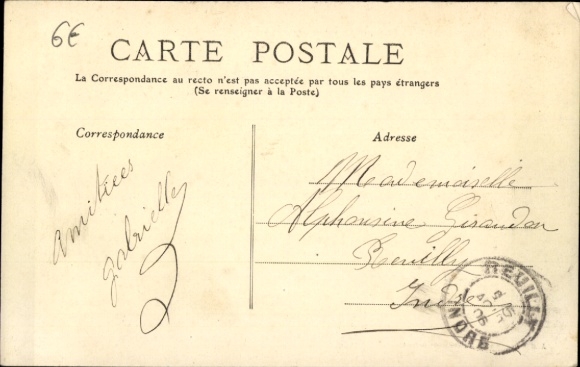 6€
CARTE POSTALE
La Correspondance au recto n'est pas acceptée par tous les pays étrangers
(Se renseigner à la Poste)
Correspondance
Adresse
Amitiées
Gabrielle
Mademoiselle
Alphonsine Giraudon
Reuilly
Indre
REUILLY
INDRE